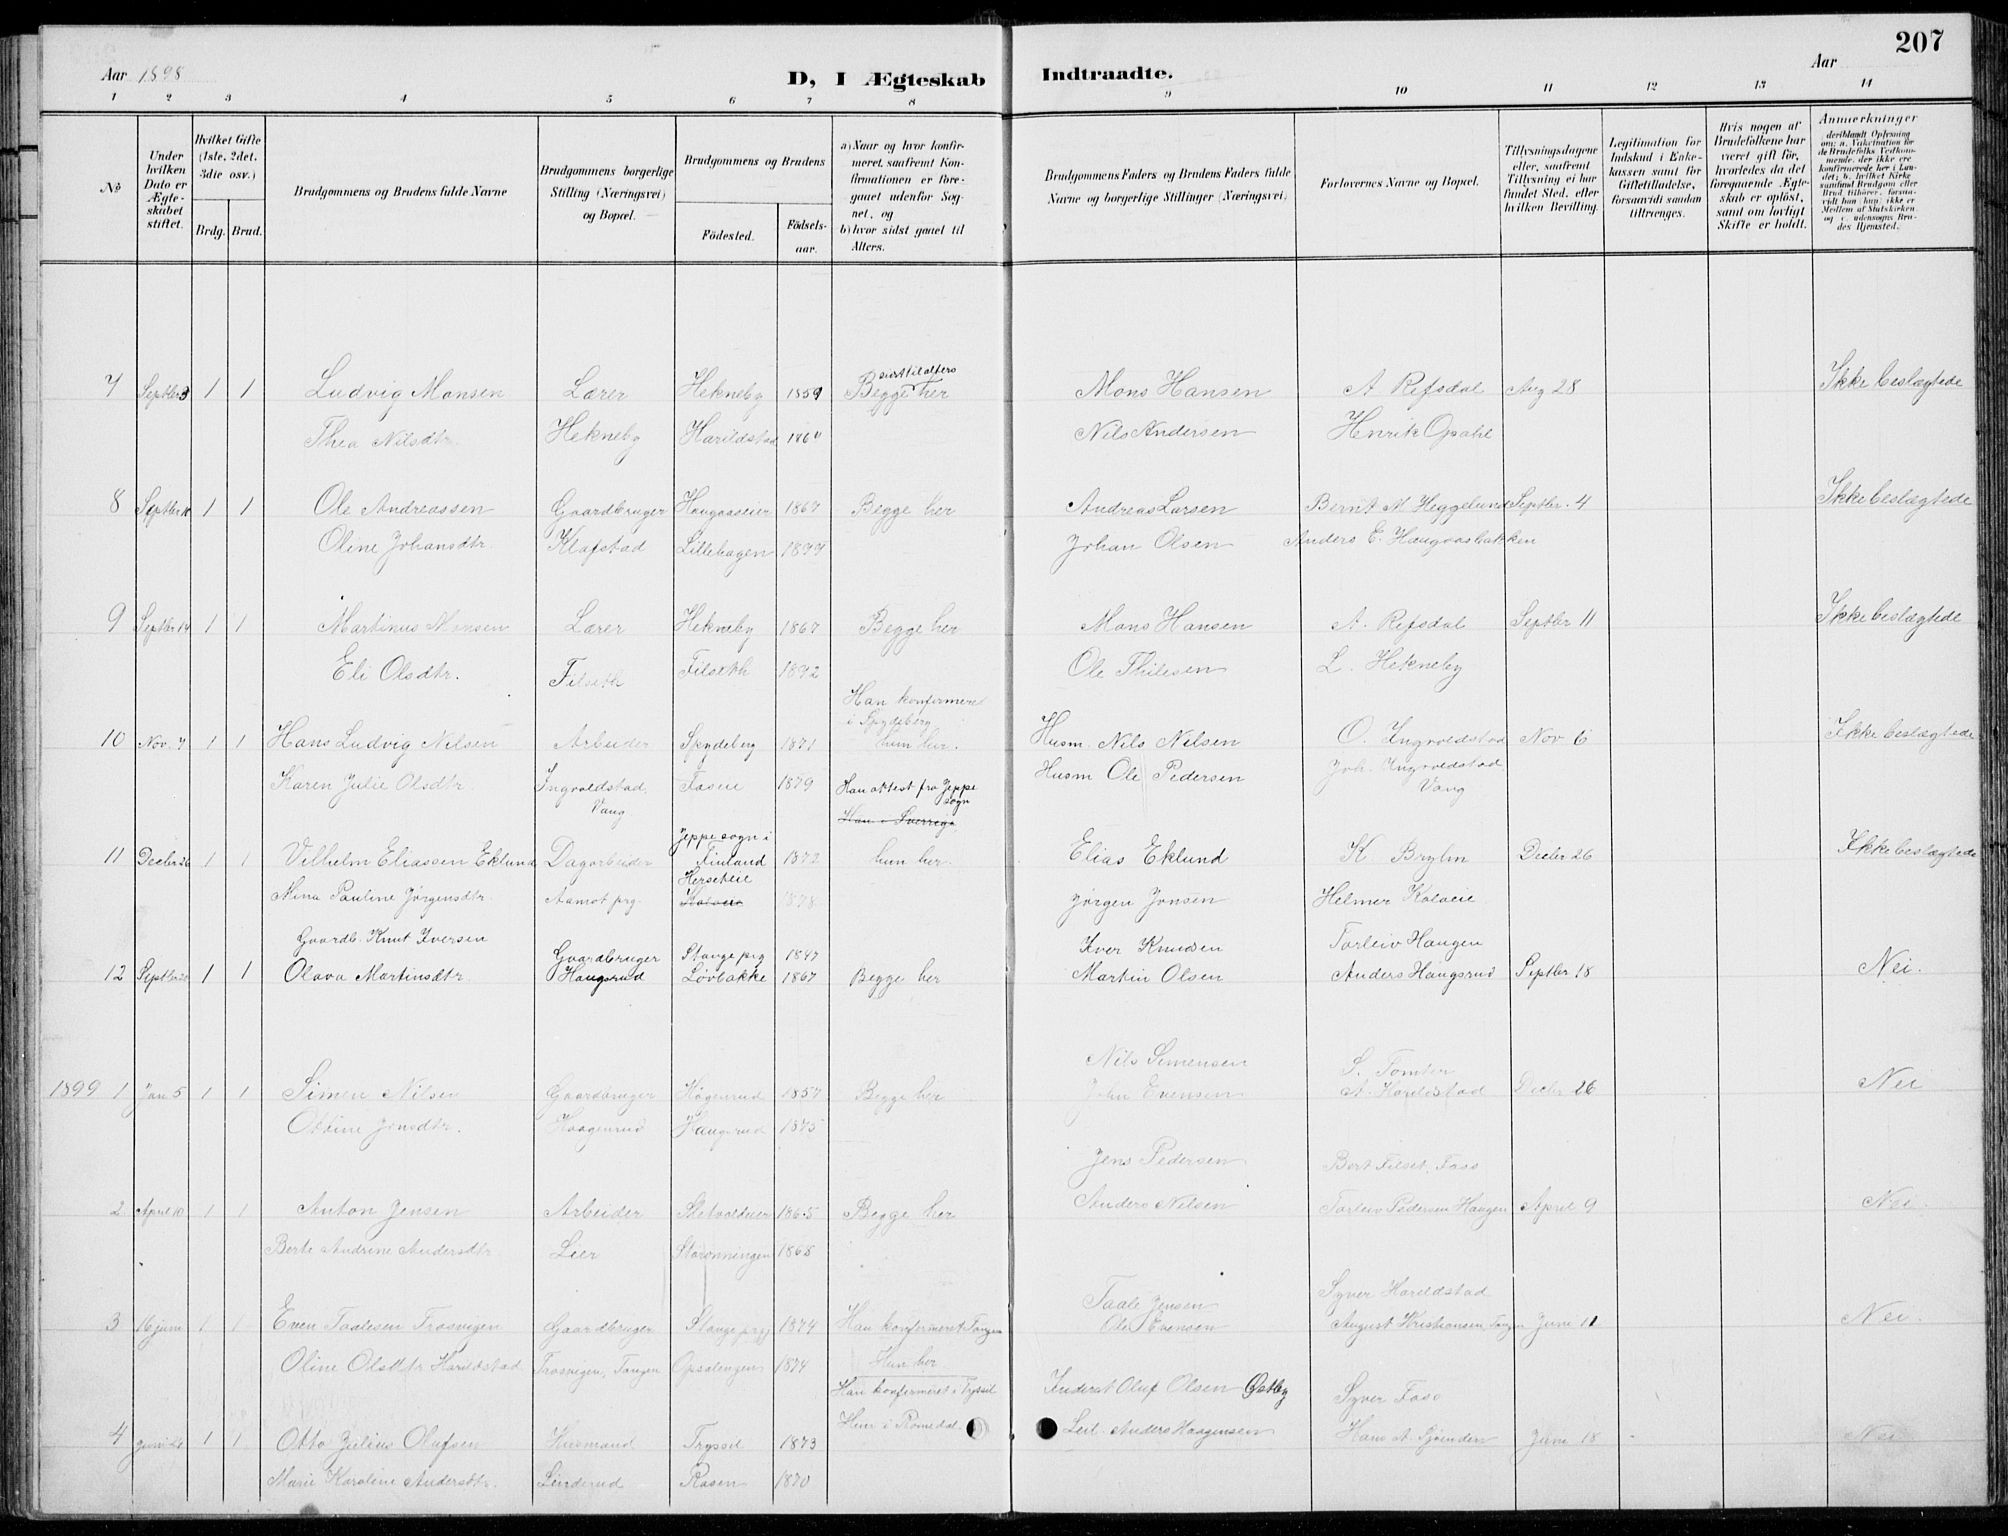 207
Aar 1898
D, I Ægteskab Indtraadte.
Aar
1 2 3 4 5 6 7 8 9 10 11 12 13 14
No
Under hvilken Dato er Ægteskabet stiftet.
Hvilket Gifte (1ste, 2det, 3die osv.)
Brdg. Brud.
Brudgommens og Brudens fulde Navne
Brudgommens borgerlige Stilling (Næringsvei) og Bopæl.
Brudgommens og Brudens
Fødested.
Fødselsaar.
a) Naar og hvor konfirmeret, saafremt Konfirmationen er foregaaet udenfor Sognet, og
b) hvor sidst gaaet til Alters.
Brudgommens Faders og Brudens Faders fulde Navne og borgerlige Stillinger (Næringsvei)
Forlovernes Navne og Bopæl.
Tillysningsdagene eller, saafremt Tillysning ei har fundet Sted, efter hvilken Bevilling.
Legitimation for Indskud i Enkekassen samt for Giftetilladelse, forsaavidt saadan tiltrænges.
Hvis nogen af Brudefolkene har været gift før, hvorledes da det foregaaende Ægteskab er opløst, samt om lovligt Skifte er holdt.
Anmerkninger
deriblandt Oplysning om: a. Vakcination for de Brudefolks Vedkommende, der ikke er konfirmerede her i Landet; b. hvilket Kirkesamfund Brudgom eller Brud tilhører, forsaavidt han (hun) ikke er Medlem af Statskirken, og c. udensogns Brudes Hjemsted.
7 Septbr 3 1 1 Ludvig Monsen Lærer Hekneby 1859 Begge sidst til alters her Mons Hansen A Refsdal Aug 28 Ikke beslægtede
Thea Nilsdtr. Hekneby Harildstad Nils Andersen Henrik Opahl
8 Septbr 1 1 Ole Andreassen Gaardbruger Haugaaseier 1867 Begge her Andreas Larsen Bernt M Heggelund Septbr. 4 Ikke beslægtede
Oline Johansdtr. Klafstad Lillehagen 1877 Johan Olsen Anders E. Haugaasbakken
9 Septbr 14 1 1 Martinus Monsen Lærer Hekneby 1867 Begge her Mons Hansen A. Refsdal Septbr 11 Ikke beslægtede
Eli Olsdtr. Filseth Filseth 1872 Ole Thilesen L. Hekneby
10 Nov. 7 1 1 Hans Ludvig Nilsen Arbeider Spydeberg 1871 Han konfirmeret i Spydeberg hun her. Husm. Nils Nilsen O. Ingvoldstad Nov 6 Ikke beslægtede
Karen Julie Olsdtr. Ingvoldstad, Vang Foseie 1879 Husm Ole Pedersen Joh. Ingvoldstad Vang
11 Decbr 26 1 1 Vilhelm Eliassen Eklund Dagarbeider Jeppe sogn i Finland 1872 Han attest fra Jeppe sogn Han i Sverrige hun her. Elias Eklund K Bryhn Decbr 26 Ikke beslægtede
Mina Pauline Jørgensdtr. Aamot prg. 1878 Jørgen Jonsen Helmer Koloeie
12 Septbr 1 1 Gaardb. Knut Iversen Gaardbruger Stange prg 1847 Iver Knudsen Torleiv Haugen
Olava Martinsdtr. Haugsrud Løvbakke 1867 Begge her Martin Olsen Anders Haugsrud Septbr 18 Nei.
1899 1 Jan 5 1 1 Simen Nilsen Gaardbruger Høgenrud 1857 Begge her Nils Simensen S. Tomter Decbr 26 Nei
Oline Jonsdtr. Haagenrud Haugsrud 1875 John Evensen A. Harildstad
2 April 10 1 1 Anton Jensen Arbeider 1865 Begge her Jens Pedersen Bert Filset, Foss April 9 Nei
Berte Andrine Andersdtr. Lier Storønningen 1868 Anders Nilsen Torleiv Pedersen Haugen
3 16 juni 1 1 Even Taalesen Trosvigen Gaardbruger Stange prg 1874 Han konfirmeret Tangen Taale Jensen Syver Harildstad June 11 Nei.
Oline Olsdtr Harildstad Trosvigen, Tangen Opsalengen 1874 Hun her Ole Evensen August Kristiansen, Tangen
4 juni 1 1 Otto Julius Olufsen Husmand Tryssil 1873 Han konfirmeret i Tryssil Inderst Oluf Olsen Østby Syver Foss June 18 Nei
Marie Karoline Andersdtr. Linderud Rosen 1870 Hun i Romedal Leil. Anders Haagensen